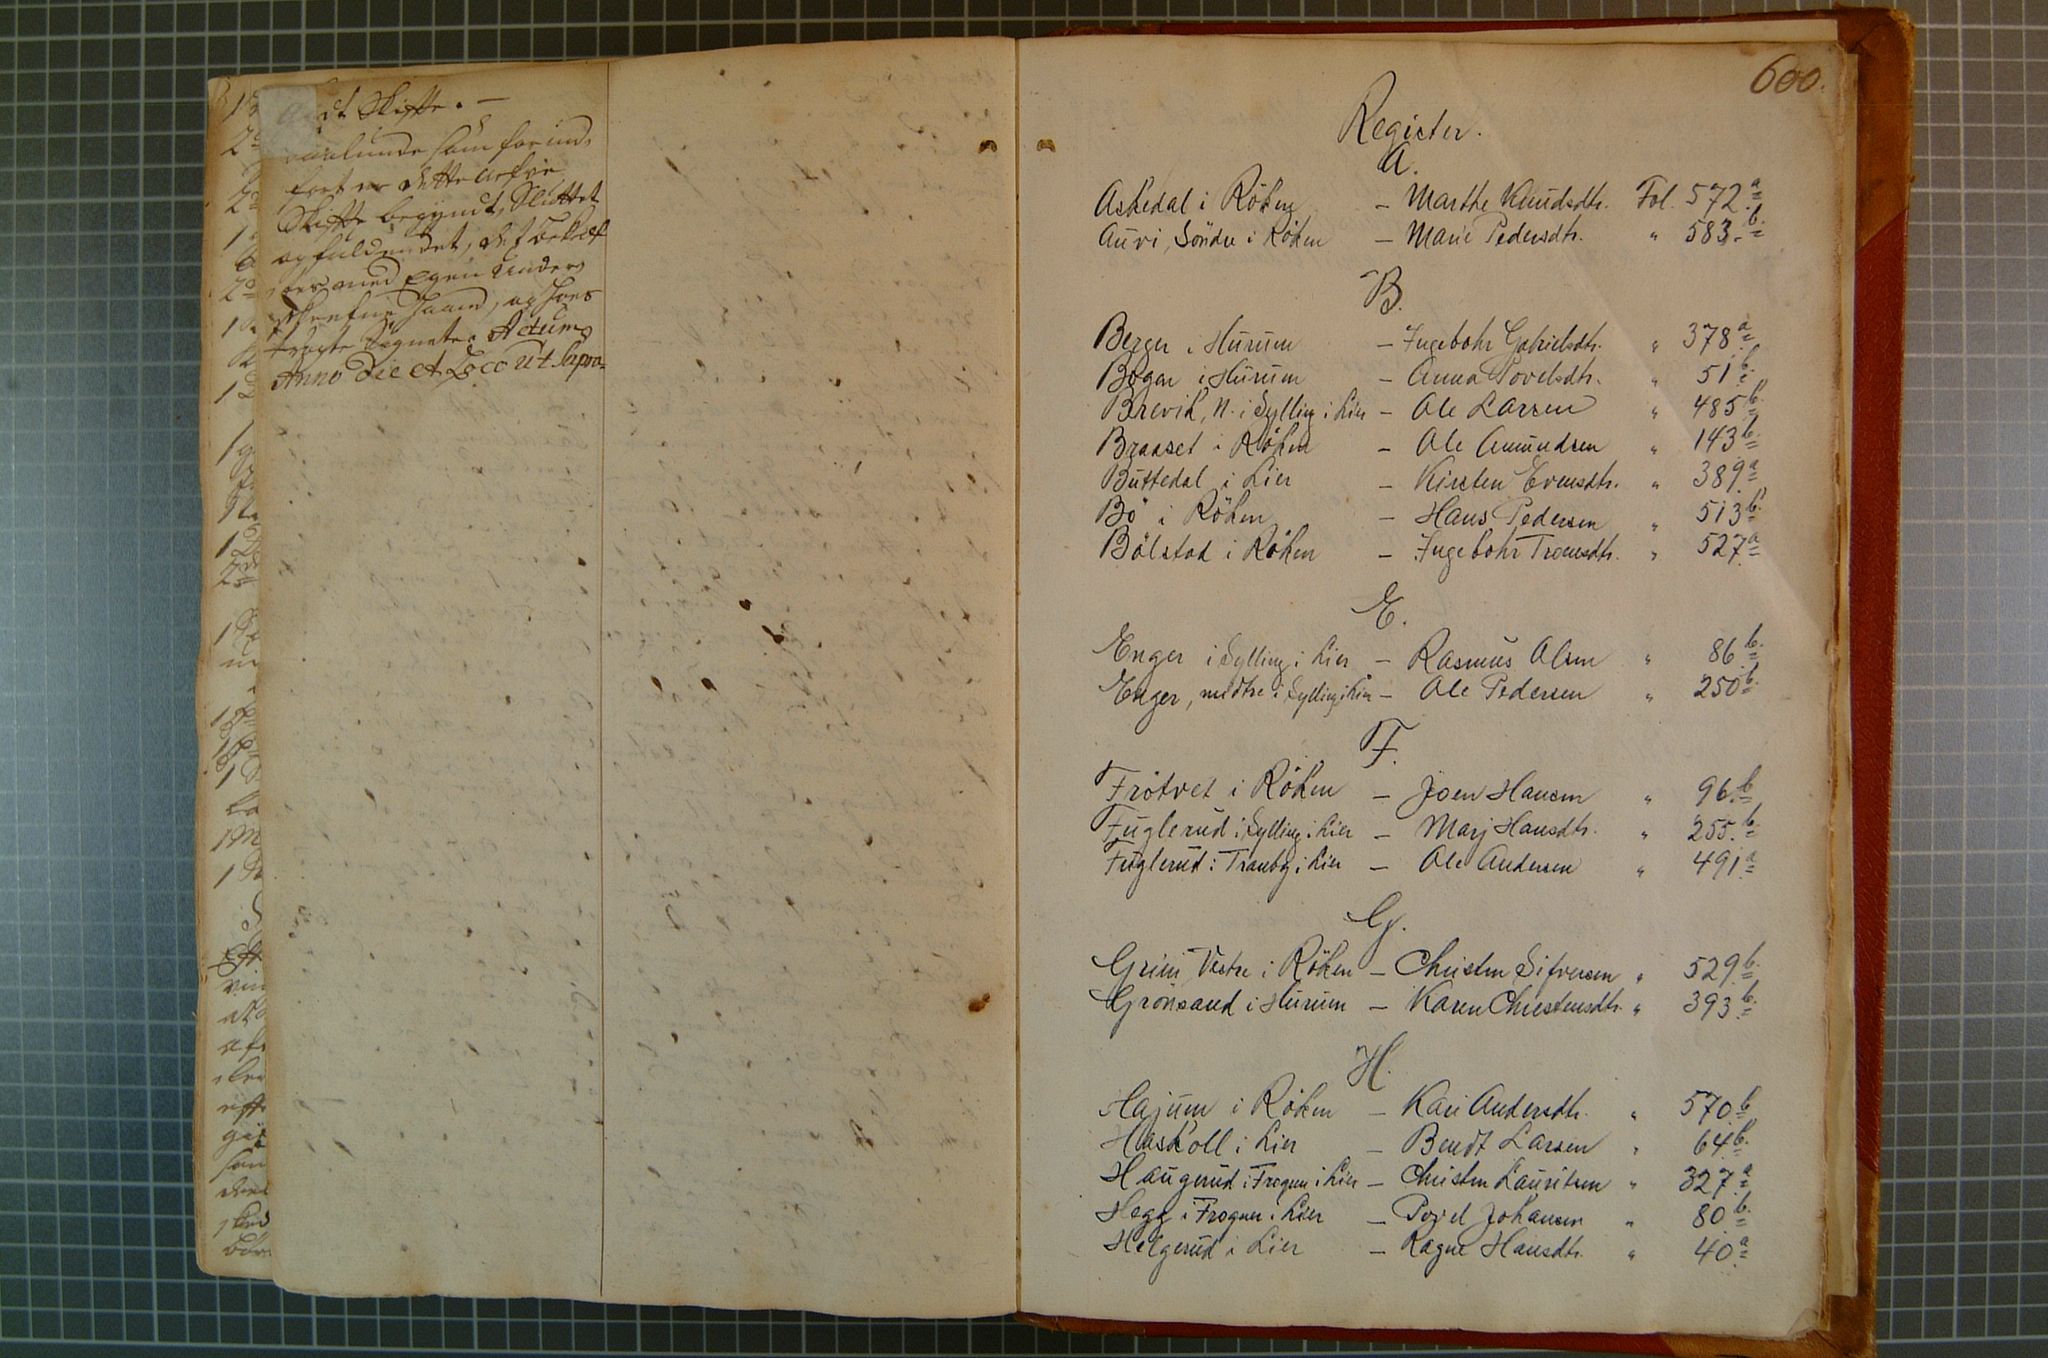 Skifte. —
saalunde som forind,
ført er dette arfve
Skifte begyndt, Sluttet
og fuldendet, det bekræf
ter med Egen Under,
skrefne Haand, og hoes
trøgte Signete. Actum
Anno Die et Loco ut supra.
600.
Register.
A.
Askedal i Röken – Marthe Knudsdtr. Fol. 572.a
Auvi, Söndre i Röken – Marie Pedersdtr. " 583.b
B.
Berger i Hurum – Ingebohr Gabrielsdtr. " 378.a
Bogen i Hurum – Anna Povelsdtr. " 51.b
Brevik, N. i Sylling i Lier – Ole Larsen " 485.b
Braaset i Röken – Ole Amundsen " 143.b
Buttedal i Lier – Kirsten Evensdtr. " 389.a
Bö i Röken – Hans Pedersen " 513.b
Bölstad i Röken – Ingebohr Troensdtr. " 527.a
E.
Enger i Sylling i Lier – Rasmus Olsen " 86.b
Enger, midtre i Sylling i Lier – Ole Pedersen " 250.b
F.
Frötvet i Röken – Joen Hansen " 96.b
Fuglerud i Sylling i Lier – Marj Hansdtr. " 255.b
Fuglerud i Tranby i Lier – Ole Andersen " 491.a
G.
Grini, Vestre i Röken – Christen Sifversen " 529.b
Grönsand i Hurum – Karen Christensdtr. " 393.b
H.
Hajum i Röken – Kari Andersdtr. " 570.b
Haskoll i Lier – Bendt Larsen " 64.b
Haugerud i Frogner i Lier – Christen Lauritsen " 327.a
Hegg i Frogner i Lier – Povel Johansen " 80.b
Helgerud i Lier – Ragne Hansdtr. " 40.a